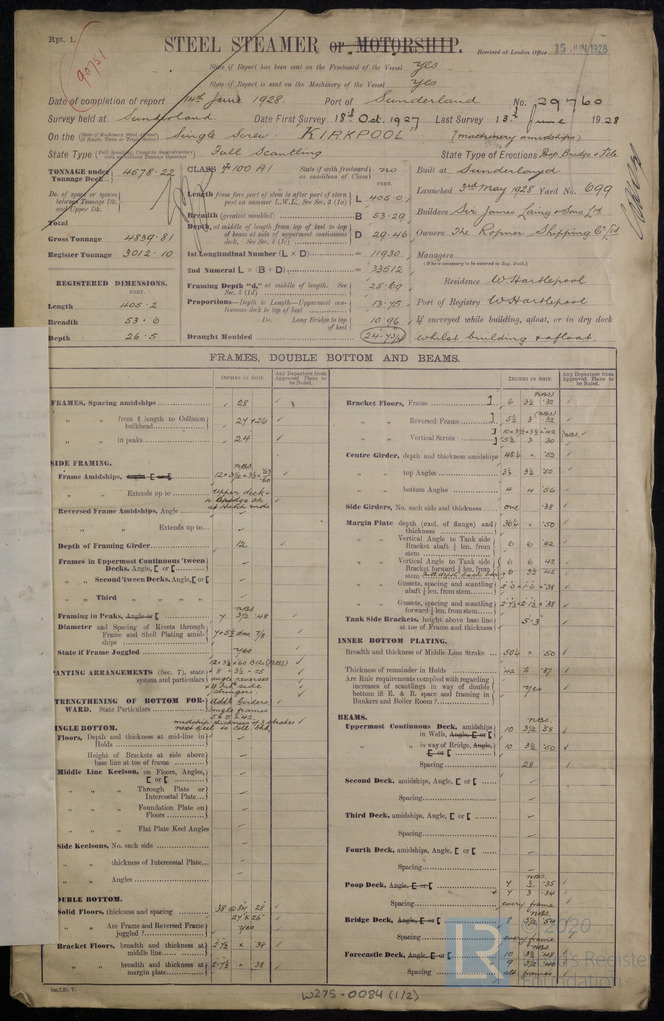 Rpt. 1.
90751
STEEL STEAMER or MOTORSHIP.
Received at London Office 15 JUN 1928
State if Report has been sent on the Freeboard of the Vessel yes
State if Report is sent on the Machinery of the Vessel yes
Date of completion of report 14th June 1928. Port of Sunderland No. 29760
Survey held at Sunderland Date First Survey 18th Oct. 1927 Last Survey 13th June 1928
On the (State if Machinery fitted Aft and if Single, Twin or Triple Screw) Single Screw KIRKPOOL (Machinery amidships)
State Type Full Scantling State Type of Erections Poop Bridge & F'cle
TONNAGE under Tonnage Deck 4578.22
CLASS 100 A1 State if with freeboard as condition of Class no
Built at Sunderland
Do. of space or spaces between Tonnage Dk. and Upper Dk.
Length from fore part of stem to after part of stern post on summer L.W.L. See Sec. 3 (1a) L 405.0
Launched 3rd May 1928 Yard No. 699
Total
Breadth (greatest moulded) B 53.29
Builders Sir James Laing & Sons Ltd
Gross Tonnage 4839.81
Depth, at middle of length from top of keel to top of beam at side of uppermost continuous deck. See Sec. 3 (1c) D 29.46
Owners The Ropner Shipping Co Ltd
Register Tonnage 3012.10
1st Longitudinal Number (L × D) = 11930
Managers
(Where necessary to be entered in Reg. Book.)
2nd Numeral L × (B + D) = 33512
Residence W. Hartlepool
REGISTERED DIMENSIONS.
FEET.
Framing Depth "d," at middle of length. See Sec. 3 (1d) 25.69
Length 405.2
Proportions—Depth to Length—Uppermost continuous deck to top of keel 13.75
Port of Registry W. Hartlepool
Breadth 53.6
Do. Long Bridge to top of keel 10.96
If surveyed while building, afloat, or in dry dock
Depth 26.5
Draught Moulded 24.73¾
whilst building & afloat.
FRAMES, DOUBLE BOTTOM AND BEAMS.
INCHES IN SHIP.
Any Departure from Approved Plans to be Noted.
FRAMES, Spacing amidships 28
" " from ⅕ length to Collision bulkhead 27 & 26
" " in peaks 24
SIDE FRAMING.
Frame Amidships, Angle E or [
" " Extends up to upper deck
Reversed Frame Amidships, Angle
" " Extends up to
Depth of Framing Girder 12
Frames in Uppermost Continuous 'tween Decks, Angle, [ or [
" " Second 'tween Decks, Angle, [ or [
" " Third " " " "
Framing in Peaks, Angle or [ 7 3½ .48
Diameter and Spacing of Rivets through Frame and Shell Plating amidships
State if Frame Joggled yes
PANTING ARRANGEMENTS (Sec. 7), state system and particulars
STRENGTHENING OF BOTTOM FORWARD. State Particulars Addl. Girders
SINGLE BOTTOM.
Floors, Depth and thickness at mid-line in Holds
Height of Brackets at side above base line at toe of frame
Middle Line Keelson, on Floors, Angles, [ or [
" " Through Plate or Intercostal Plate
" " Foundation Plate on Floors
" " Flat Plate Keel Angles
Side Keelsons, No. each side
" " thickness of Intercostal Plate
" " Angles
DOUBLE BOTTOM.
Solid Floors, thickness and spacing
" " Are Frame and Reversed Frame joggled? yes
Bracket Floors, breadth and thickness at middle line 2-7½ × .34
" " breadth and thickness at margin plate 2-7½ × .38
INCHES IN SHIP.
Any Departure from Approved Plans to be Noted.
Bracket Floors, Frame 6 3½ .32
" " Reversed Frame 5½ 3 .32
" " Vertical Struts
Centre Girder, depth and thickness amidships
" " top Angles 3½ 3½ .50
" " bottom Angles 4 4 .56
Side Girders, No. each side and thickness one .38
Margin Plate depth (excl. of flange) and thickness 36½ × .50
" " Vertical Angle to Tank side Bracket abaft ¼ len. from stem 6 6 .42
" " Vertical Angle to Tank side Bracket forward ¼ len. from stem 6 6 .42
" " Gussets, spacing and scantling abaft ¼ len. from stem
" " Gussets, spacing and scantling forward ¼ len. from stem
Tank Side Brackets, height above base line at toe of Frame and thickness 5-3
INNER BOTTOM PLATING.
Breadth and thickness of Middle Line Strake 50½ × .50
Thickness of remainder in Holds
Are Rule requirements complied with regarding increases of scantlings in way of double bottom in E. & B. space and framing in Bunkers and Boiler Room? yes
BEAMS.
Uppermost Continuous Deck, amidships in Wells, Angle, [ or [ 10 3½ .58
" " in way of Bridge, Angle, [ or [ 10 3½ .50
Spacing 28
Second Deck, amidships, Angle, [ or [
Spacing
Third Deck, amidships, Angle, [ or [
Spacing
Fourth Deck, amidships, Angle, [ or [
Spacing
Poop Deck, Angle, [ or [ 7 3 .35
7 3 .34
Spacing every frame
Bridge Deck, Angle, [ or [ 8 3½ .50
Spacing every frame
Forecastle Deck, Angle, [ or [
Spacing alt frames
© 2020
Lloyd's Register
Foundation
W275-0084 (1/2)